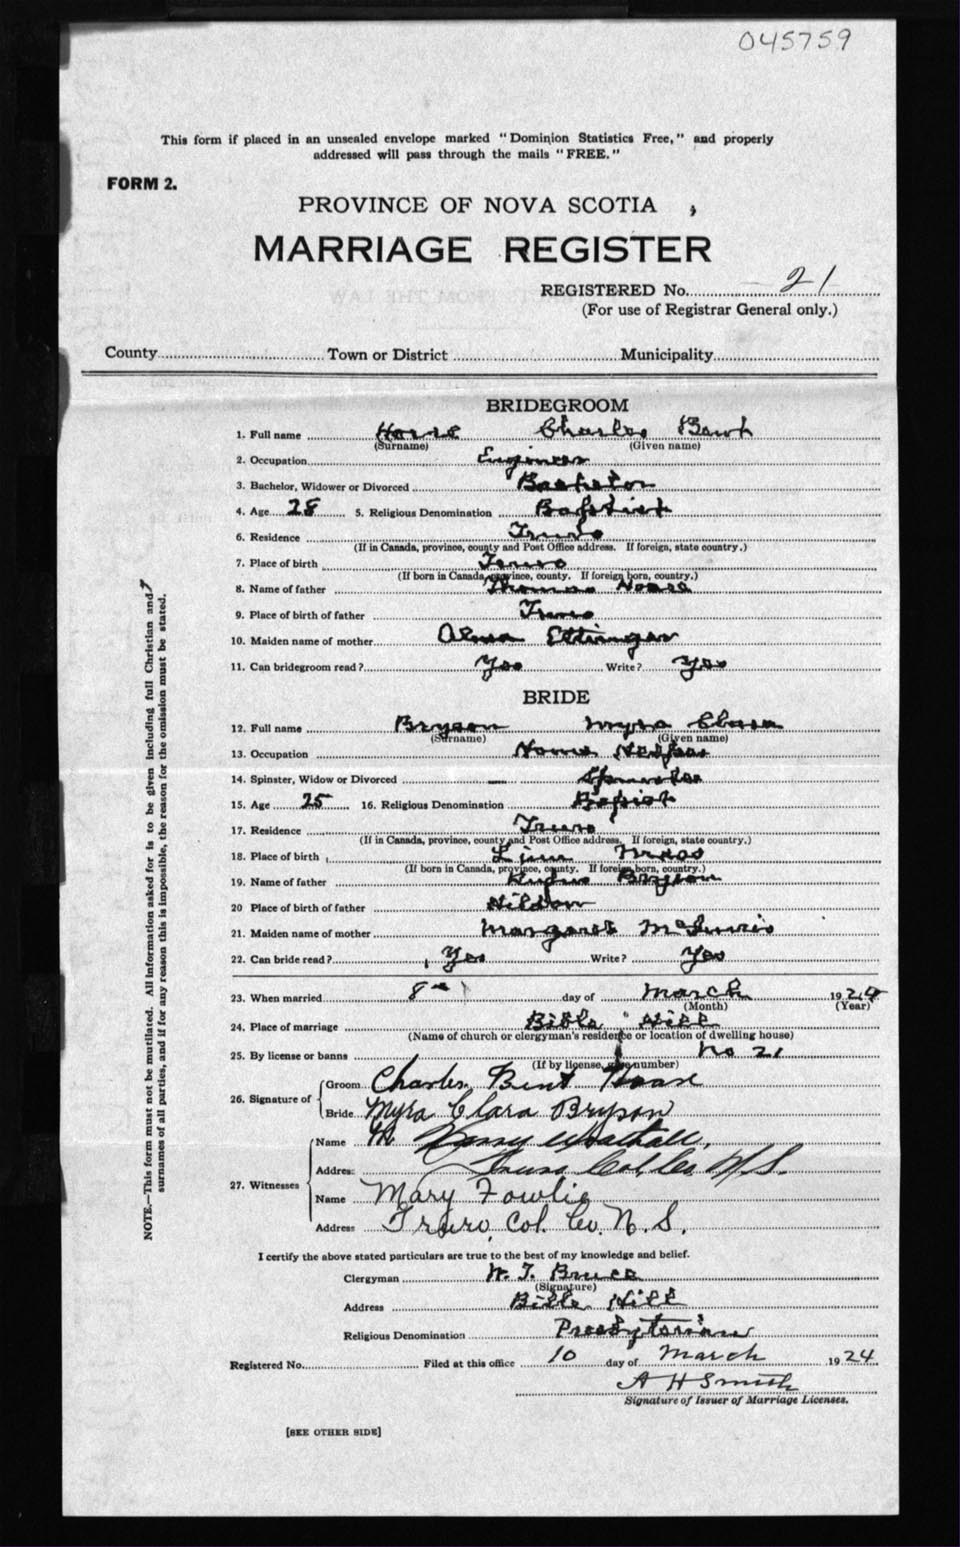 045759
This form if placed in an unsealed envelope marked "Dominion Statistics Free," and properly
addressed will pass through the mails "FREE."
FORM 2.
PROVINCE OF NOVA SCOTIA
MARRIAGE REGISTER
REGISTERED No. 21
(For use of Registrar General only.)
County Town or District Municipality
BRIDEGROOM
1. Full name Charles
(Surname) (Given name)
2. Occupation Engineer
3. Bachelor, Widower or Divorced Bachelor
4. Age 28 5. Religious Denomination Baptist
6. Residence Truro
(If in Canada, province, county and Post Office address. If foreign, state country.)
7. Place of birth Truro
(If born in Canada, province, county. If foreign born, country.)
8. Name of father Thomas Hoare
9. Place of birth of father Truro
10. Maiden name of mother Alma Ettinger
11. Can bridegroom read? Yes Write? Yes
BRIDE
12. Full name Bryson Myra Clara
(Surname) (Given name)
13. Occupation Home
14. Spinster, Widow or Divorced Spinster
15. Age 25 16. Religious Denomination Baptist
17. Residence Truro
(If in Canada, province, county and Post Office address. If foreign, state country.)
18. Place of birth
(If born in Canada, province, county. If foreign born, country.)
19. Name of father Rufus Bryson
20 Place of birth of father
21. Maiden name of mother Margaret
22. Can bride read? Yes Write? Yes
23. When married 8th day of March 1924
(Month) (Year)
24. Place of marriage Bible Hill
(Name of church or clergyman's residence or location of dwelling house)
25. By license or banns No 21
(If by license, give number)
26. Signature of Groom Charles Bent Hoare
Bride Myra Clara Bryson
27. Witnesses Name
Address Truro Col. Co. N.S.
Name Mary Fowlie
Address Truro, Col. Co. N.S.
I certify the above stated particulars are true to the best of my knowledge and belief.
Clergyman W. T. Bruce
(Signature)
Address Bible Hill
Religious Denomination Presbyterian
Registered No. Filed at this office 10 day of March 1924
A H Smith
Signature of Issuer of Marriage Licenses.
[SEE OTHER SIDE]
NOTE.—This form must not be mutilated. All information asked for is to be given including full Christian and
surnames of all parties, and if for any reason this is impossible, the reason for the omission must be stated.